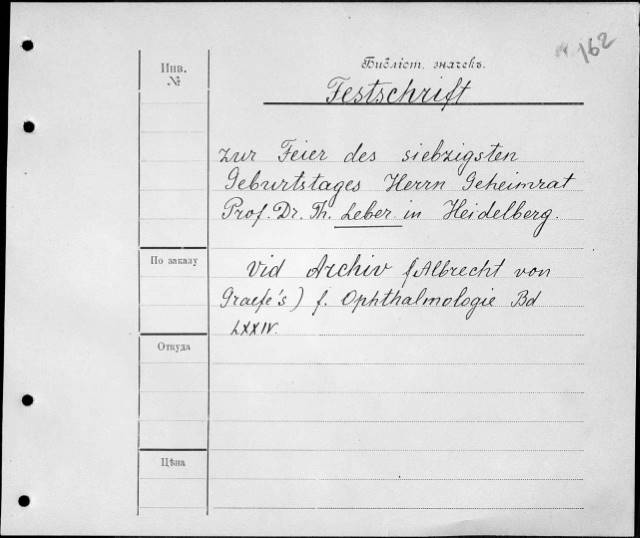 162
Инв.
№
Библіот. значекъ.
Festschrift
zur Feier des siebzigsten
Geburtstages Herrn Geheimrat
Prof. Dr. Th. Leber in Heidelberg.
По заказу
Vid Archiv f (Albrecht von
Graefe's) f. Ophthalmologie Bd
LXXIV.
Откуда
Цѣна